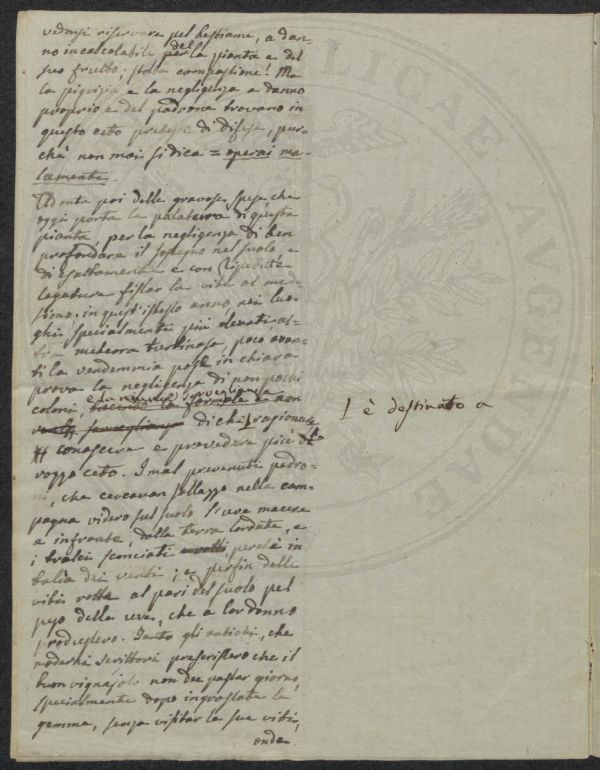 vedonsi riservare pel bestiame, a dan-
no incalcolabile della pianta e del
suo frutto; stolta compassione! Ma
la pigrizia e la negligenza a danno
proprio e del padrone trovano in
questo ceto pretesti di difesa, pur-
chè non mai si dica = operai ma-
lamente.
Ad onta poi delle gravose spese che
oggi porta la palatura di questa
pianta, per la negligenza di ben
profondare il sostegno nel suolo, e
di esattamente e con
legatura fissar la vite al mede-
simo; in quest'istesso anno, nei luo-
ghi specialmente più elevati, al-
tra meteora turbinosa, poco avan-
ti la vendemmia pose in chiara
prova la negligenza di non pochi
coloni, e la niuna sorveglianza
di chi ragionar
conoscere e provedere più al
rozzo ceto. I mal prevenuti padro-
ni, che cercavan sollazzo nella cam-
pagna videro sul suolo l'uve macere
e infrante, dalla terra lordate, e
i tralci sconciati perchè in
balìa dei venti; e persin delle
viti rotte al pari del suolo pel
peso delle uve, che a lor danno
produssero. Tanto gli antichi, che
moderni scrittori prescrissero che il
buon vignajolo non dee passar giorno,
specialmente dopo ingrossata la
gemma, senza visitar la sua vite,
onde
è destinato a